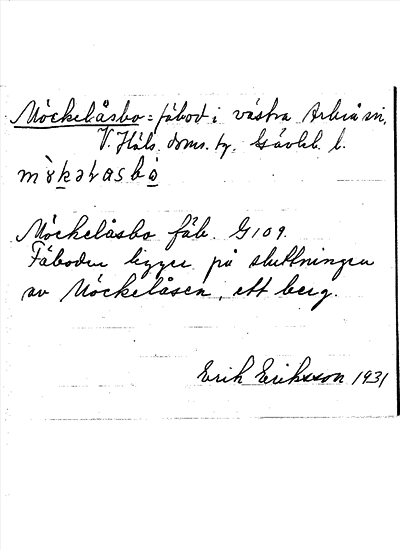 Möckelåsbo = fäbod i västra Arbrå sn,
V. Häls. doms. tg. Gävleb. l.
Möckelåsbo fäb. G109.
Fäboden ligger på sluttningen
av Möckelåsen, ett berg.
Erik Eriksson 1931